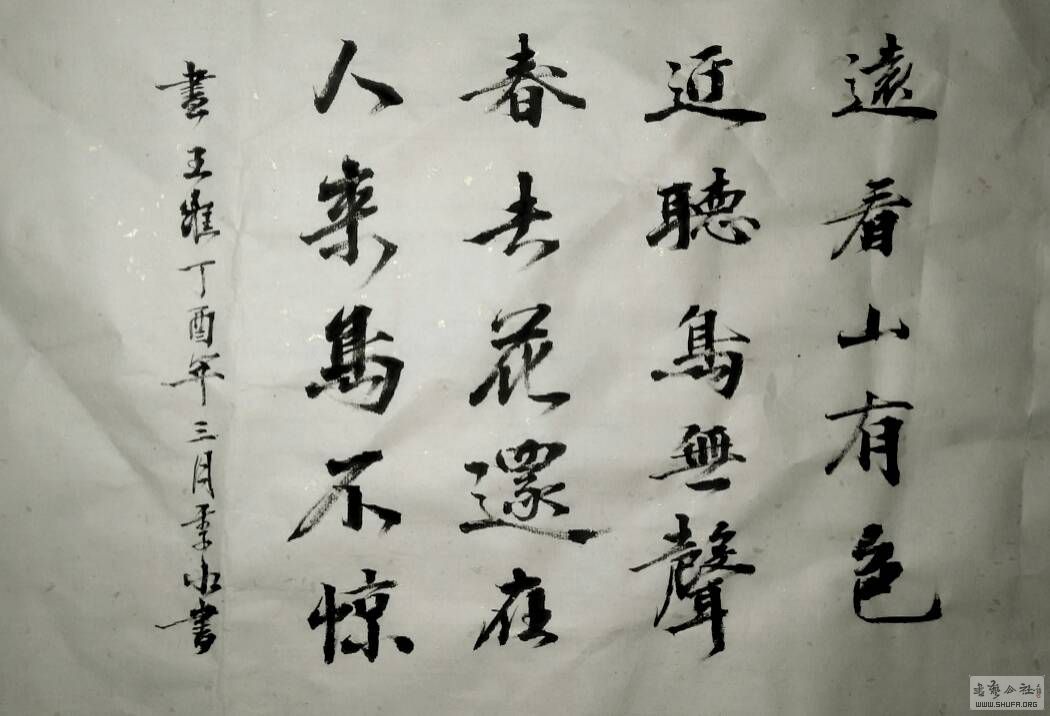 遠看山有色
近聽鳥無聲
春去花還在
人來鳥不惊
畫 王維 丁酉年三月季水書
书艺公社
WWW.SHUFA.ORG